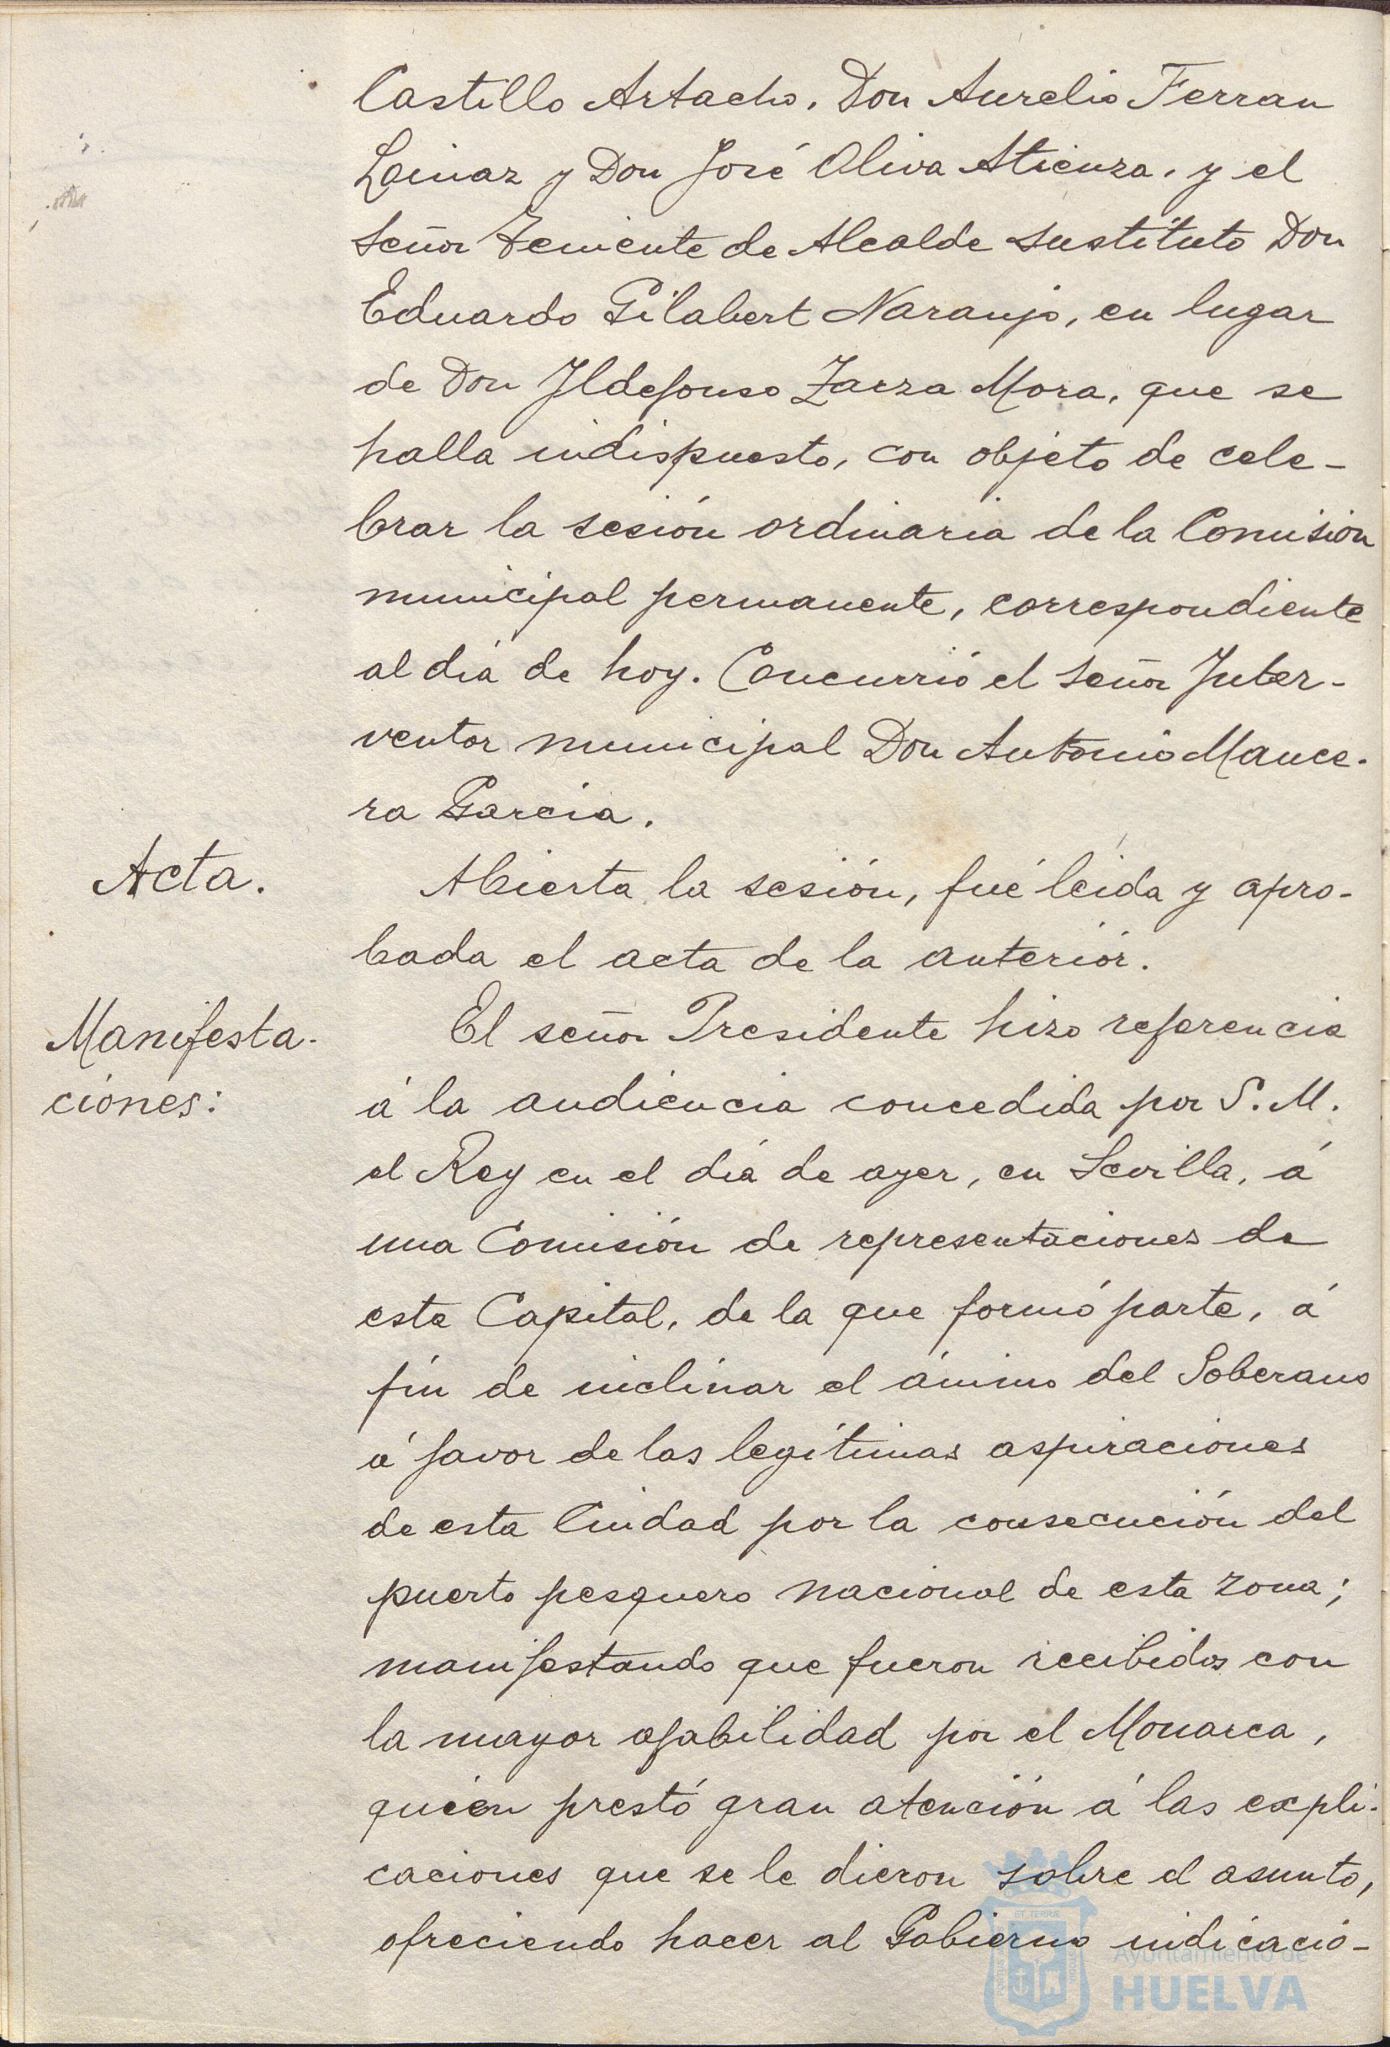 Castillo Artacho, Don Aurelio Ferran
Lainaz y Don José Oliva Atienza, y el
Señor Teniente de Alcalde sustituto Don
Eduardo Gilabert Naranjo, en lugar
de Don Ildefonso Zarza Mora, que se
halla indispuesto, con objeto de cele-
brar la sesión ordinaria de la Comisión
municipal permanente, correspondiente
al día de hoy. Concurrió el Señor Inter-
ventor municipal Don Antonio Mance-
ra García.
Acta.
Abierta la sesión, fué leida y apro-
bada el acta de la anterior.
Manifesta-
ciones:
El señor Presidente hizo referencia
á la audiencia concedida por S. M.
el Rey en el día de ayer, en Sevilla, á
una Comisión de representaciones de
esta Capital, de la que formó parte, á
fin de inclinar el ánimo del Soberano
á favor de las legítimas aspiraciones
de esta Ciudad por la consecución del
puerto pesquero nacional de esta zona;
manifestando que fueron recibidos con
la mayor afabilidad por el Monarca,
quien prestó gran atención á las expli-
caciones que se le dieron sobre el asunto,
ofreciendo hacer al Gobierno indicacio-
Ayuntamiento de
HUELVA